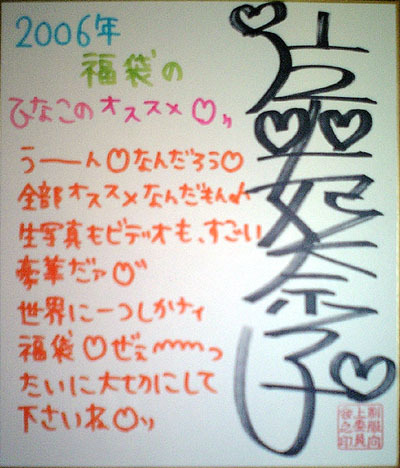 2006年
福袋の
ひなこのオススメ♡ッ
う——ん♡なんだろう♡
全部オススメなんだもん♪
生写真もビデオも、すごい
豪華だァ♡"
世界に一つしかナイ
福袋♡ぜぇ〜〜〜っ
たいに大切にして
下さいね♡ッ
妃奈子
制服向
上委員
会之印